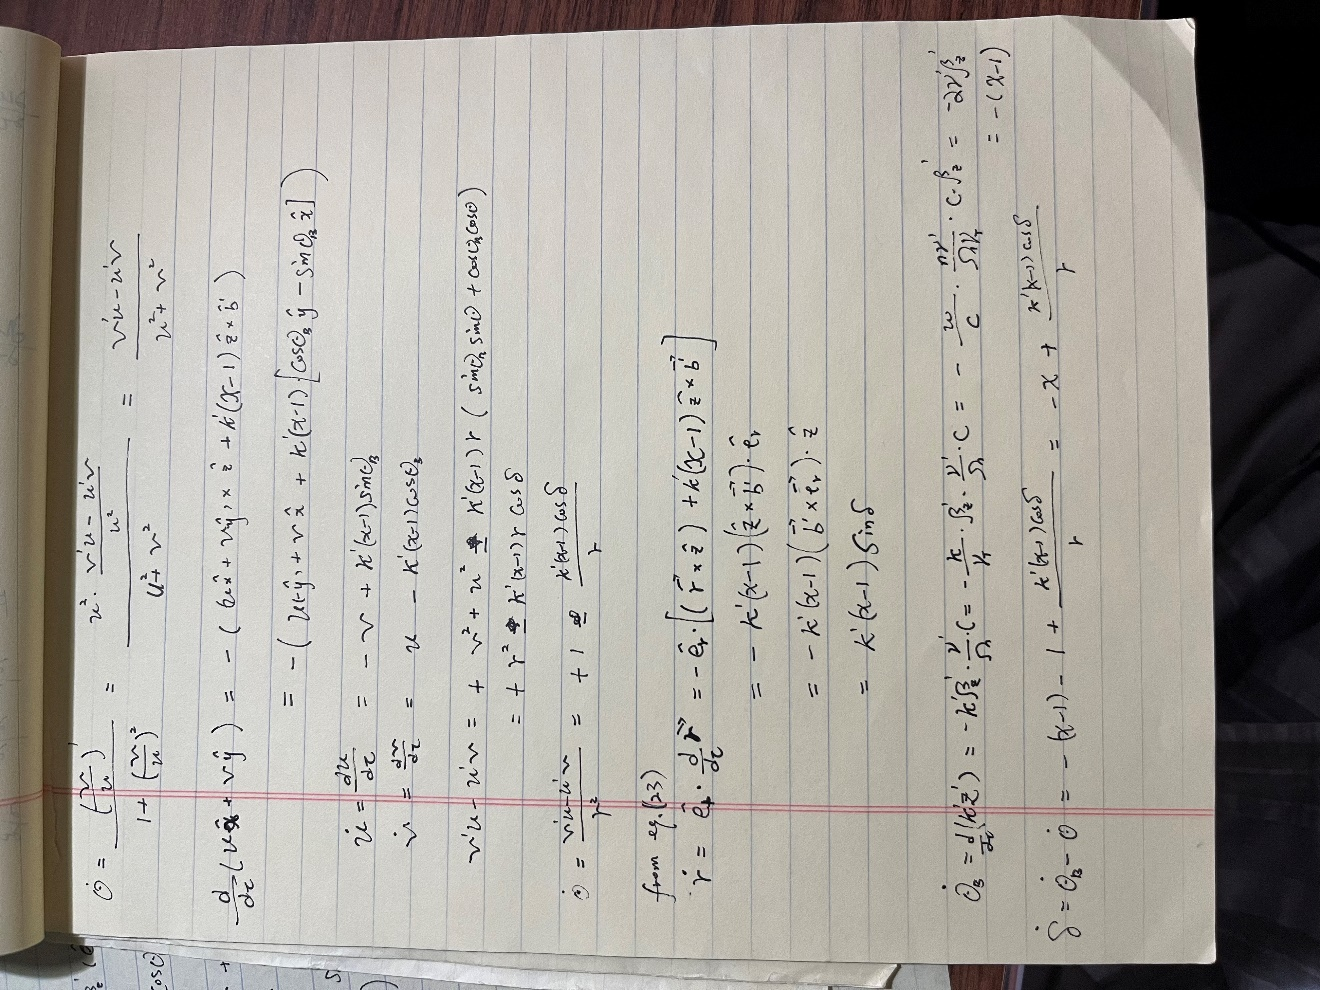 θ̇ = (v/u)' / (1 + (v/u)²) = u² · (v̇u − u̇v)/u² / (u² + v²) = (v̇u − u̇v) / (u² + v²)
d/dτ (u x̂ + v ŷ) = − (u x̂ + v ŷ) × ẑ + k'(x−1) ẑ × b̂'
= − (u(−ŷ) + v x̂ + k'(x−1) [cosθ_B ŷ − sinθ_B x̂])
u̇ = du/dτ = − v + k'(x−1) sinθ_B
v̇ = dv/dτ = u − k'(x−1) cosθ_B
v̇u − u̇v = + v² + u² − k'(x−1) r (sinθ_B sinθ + cosθ_B cosθ)
= + r² − k'(x−1) r cosδ
θ̇ = (v̇u − u̇v)/r² = + 1 − k'(x−1) cosδ / r
from eq. (23)
ṙ = ê_r · d/dτ r⃗ = − ê_r · [(r⃗ × ẑ) + k'(x−1) ẑ × b⃗']
= − k'(x−1) (ẑ × b⃗') · ê_r
= − k'(x−1) (b⃗' × e⃗_r) · ẑ
= k'(x−1) sinδ
θ̇_B = d/dτ (k'z') = − k'β_z' · γ'/Ω · c = − k/γ_r · β_z' · γ'/Ω · c = − w/c · nγ'/Ωγ_r · c · β_z' = −2γ'β_z'
= − (x−1)
δ̇ = θ̇_B − θ̇ = − (x−1) − 1 + k'(x−1) cosδ / r = − x + k'(x−1) cosδ / r